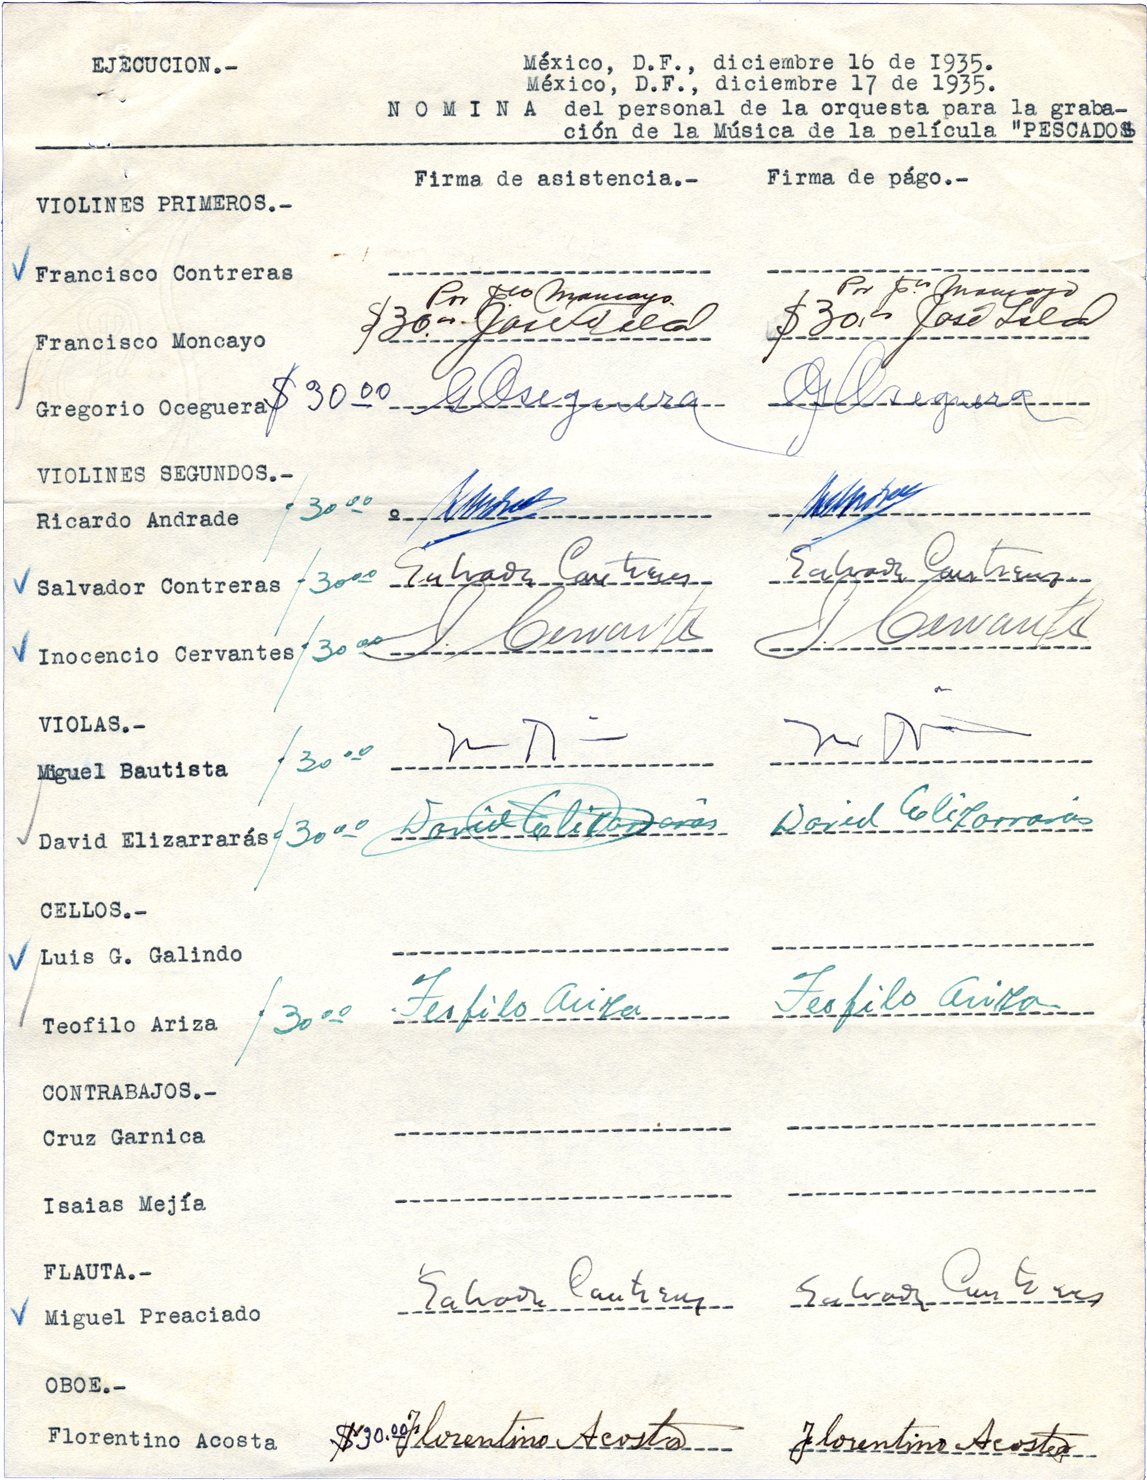 EJECUCION.-
México, D.F., diciembre 16 de 1935.
México, D.F., diciembre 17 de 1935.
N O M I N A del personal de la orquesta para la graba-
ción de la Música de la película "PESCADOS
Firma de asistencia.- Firma de págo.-
VIOLINES PRIMEROS.-
Francisco Contreras
Por Fco Moncayo Por Fco Moncayo
Francisco Moncayo $30.00 José $30.00 José
Gregorio Oceguera $30.00 G Oseguera G Oseguera
VIOLINES SEGUNDOS.-
Ricardo Andrade $30.00
Salvador Contreras $30.00 Salvador Contreras Salvador Contreras
Inocencio Cervantes $30.00 I. Cervantes I. Cervantes
VIOLAS.-
Miguel Bautista $30.00
David Elizarrarás $30.00 David Elizarrarás David Elizarrarás
CELLOS.-
Luis G. Galindo
Teofilo Ariza $30.00 Teofilo Ariza Teofilo Ariza
CONTRABAJOS.-
Cruz Garnica
Isaias Mejía
FLAUTA.-
Miguel Preaciado Salvador Contreras Salvador Contreras
OBOE.-
Florentino Acosta $30.00 Florentino Acosta Florentino Acosta